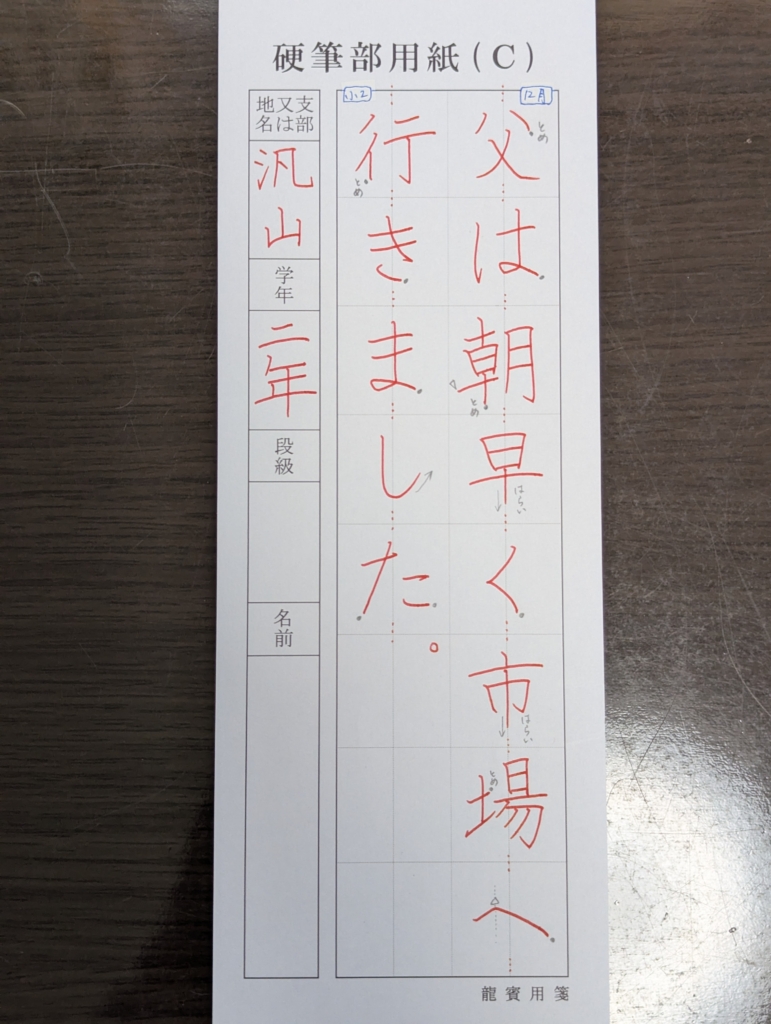 硬筆部用紙(C)
12月
小2
父は朝早く市場へ
行きました。
とめ
とめ
はらい
はらい
とめ
とめ
支部又は地名
汎山
学年
二年
段級
名前
龍賓用箋